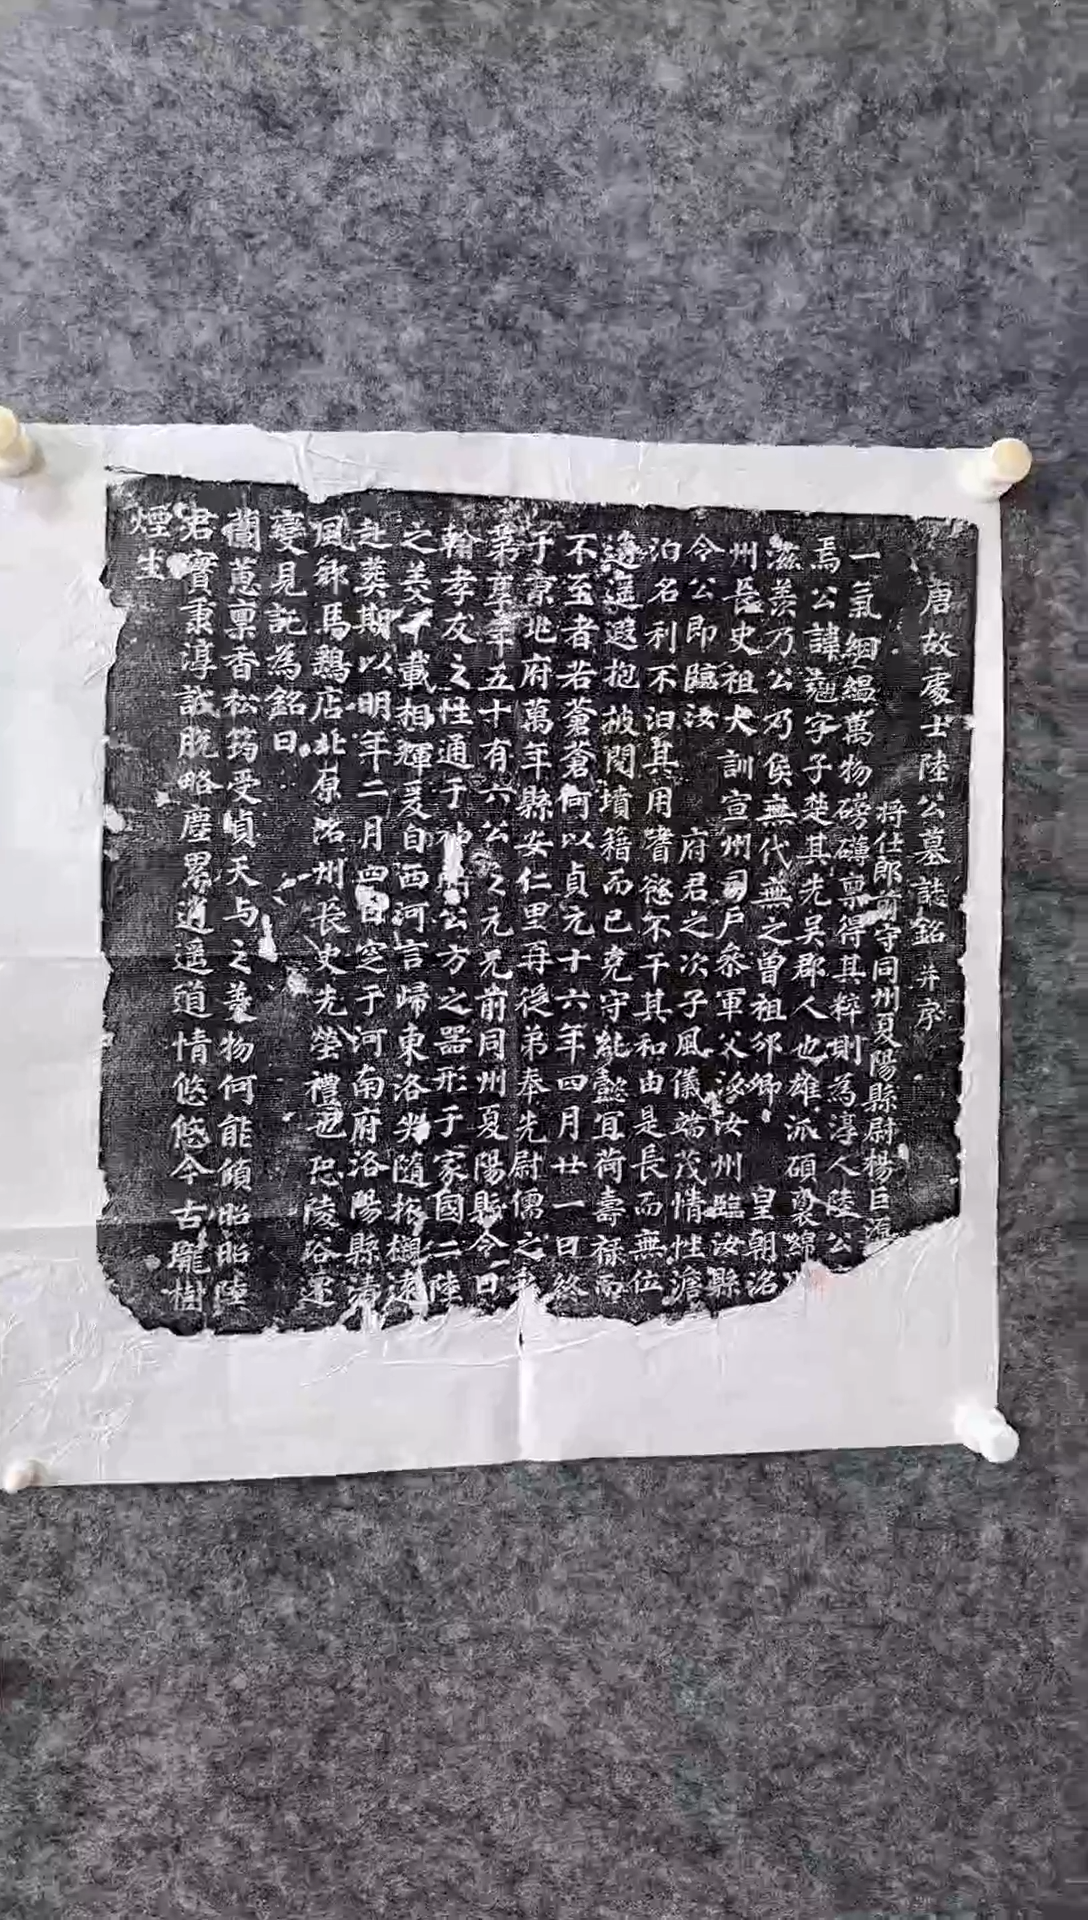 唐故處士陸公墓誌銘并序
將仕郎前守同州夏陽縣尉楊巨源
一氣絪縕萬物磅礴稟得其粹則為淳人陸公
焉公諱字子楚其先吳郡人也雄派碩裔綿
滋羨乃公乃侯無代無之曾祖邠卿皇朝洺
州長史祖大訓宣州司戶叅軍父汝州臨汝縣
令公即臨汝府君之次子風儀端茂情性澹
泊名利不汩其用嗜慾不干其和由是長而無位
遊遑遐抱披閱墳籍而已堯守能懿宜荷壽祿而
不至者若蒼蒼何以貞元十六年四月廿一日終
于京兆府萬年縣安仁里再從弟奉先尉儒之
葉享年五十有六公之元兄前同州夏陽縣令曰
翰孝友之性通于神明公方之器形于家國二陸
之美千載相輝爰自西河言歸東洛隨櫬遠
赴葬期以明年二月四日窆于河南府洛陽縣清
風鄉馬鷄店北原洺州長史先塋禮也恐陵谷遷
變見託為銘曰
蘭蕙稟香松筠受貞天与之義物何能傾昭昭陸
君實秉淳誠脫略塵累逍遥道情悠悠今古隴樹
煙生